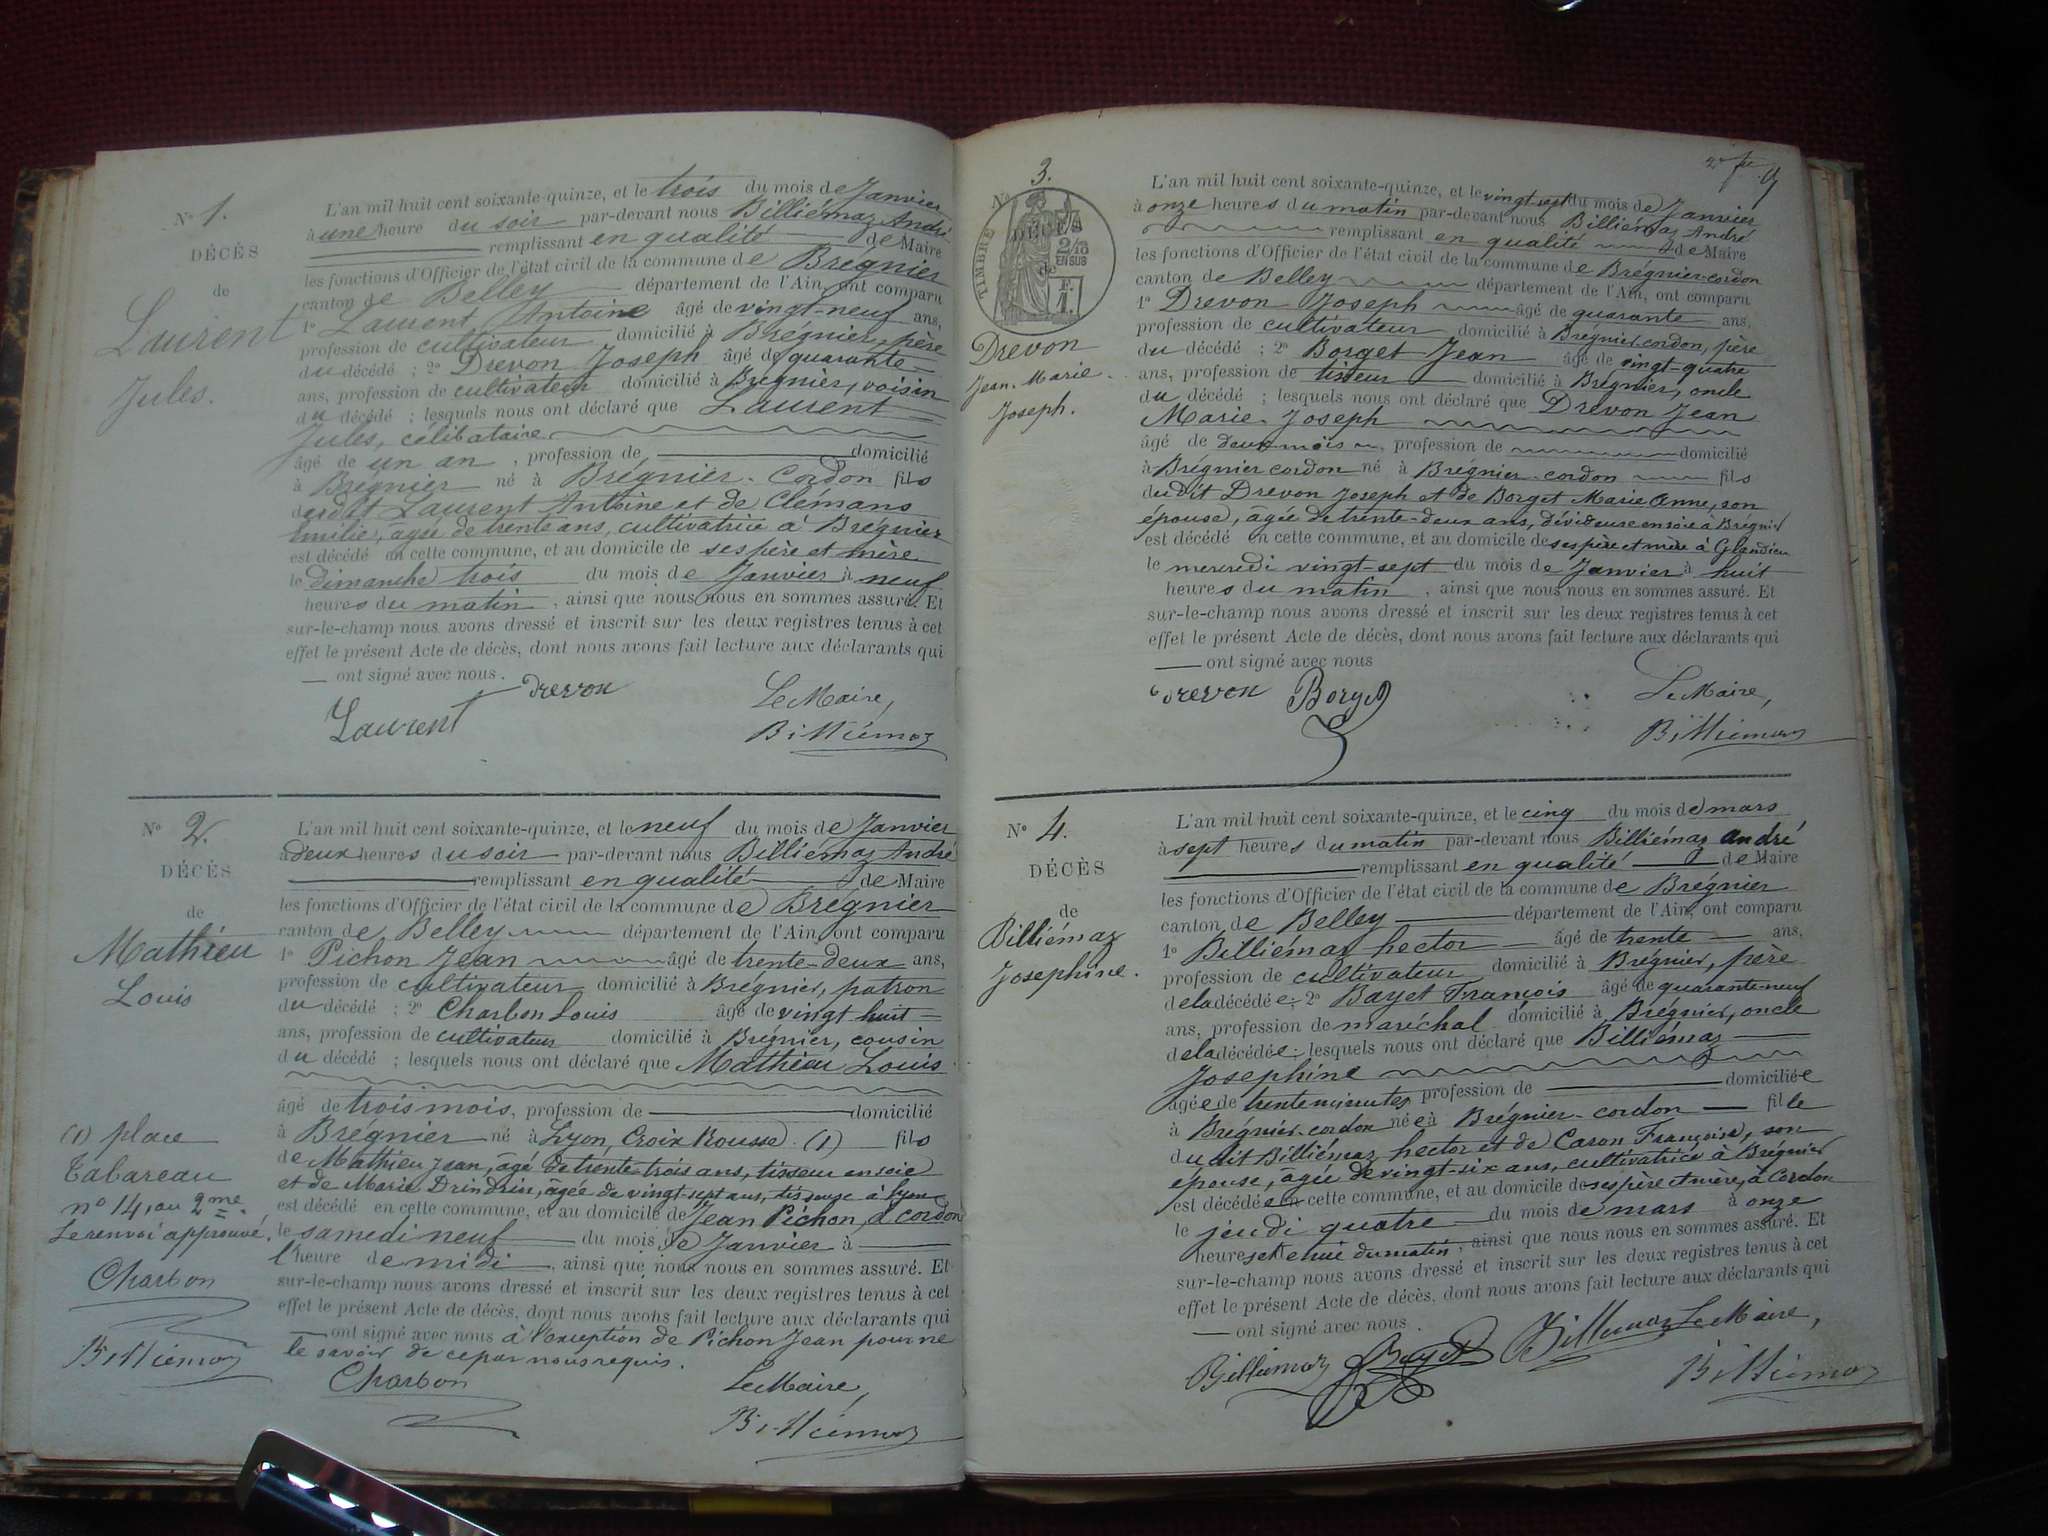 N° 1.
DÉCÈS
de
Laurent
Jules.
L'an mil huit cent soixante-quinze, et le trois du mois de Janvier
à une heure du soir par-devant nous Billiémaz André
remplissant en qualité de Maire
les fonctions d'Officier de l'état civil de la commune de Brégnier
canton de Belley département de l'Ain, ont comparu
1° Laurent Antoine âgé de vingt-neuf ans,
profession de cultivateur domicilié à Brégnier, père
du décédé ; 2° Drevon Joseph âgé de quarante
ans, profession de cultivateur domicilié à Brégnier, voisin
du décédé ; lesquels nous ont déclaré que Laurent
Jules, célibataire
âgé de un an , profession de domicilié
à Brégnier né à Brégnier-Cordon fils
dudit Laurent Antoine et de Clémans
Emilie, âgée de trente ans, cultivatrice à Brégnier
est décédé en cette commune, et au domicile de ses père et mère
le dimanche trois du mois de Janvier à neuf
heures du matin , ainsi que nous nous en sommes assuré. Et
sur-le-champ nous avons dressé et inscrit sur les deux registres tenus à cet
effet le présent Acte de décès, dont nous avons fait lecture aux déclarants qui
ont signé avec nous.
Laurent Drevon Le Maire,
Billiémaz
N° 2.
DÉCÈS
de
Mathieu
Louis
(1) place
Tabareau
n° 14, au 2me
Le renvoi approuvé.
Charbon
Billiémaz
L'an mil huit cent soixante-quinze, et le neuf du mois de Janvier
à deux heures du soir par-devant nous Billiémaz André
remplissant en qualité de Maire
les fonctions d'Officier de l'état civil de la commune de Brégnier
canton de Belley département de l'Ain, ont comparu
1° Pichon Jean âgé de trente-deux ans,
profession de cultivateur domicilié à Brégnier, patron
du décédé ; 2° Charbon Louis âgé de vingt huit
ans, profession de cultivateur domicilié à Brégnier, cousin
du décédé ; lesquels nous ont déclaré que Mathieu Louis
âgé de trois mois, profession de domicilié
à Brégnier né à Lyon, Croix Rousse (1) fils
de Mathieu Jean, âgé de trente-trois ans, tisseur en soie
et de Marie Drindrin, âgée de vingt-sept ans, tisseuse à Lyon
est décédé en cette commune, et au domicile de Jean Pichon, à Cordon
le samedi neuf du mois de Janvier à
l'heure de midi , ainsi que nous nous en sommes assuré. Et
sur-le-champ nous avons dressé et inscrit sur les deux registres tenus à cet
effet le présent Acte de décès, dont nous avons fait lecture aux déclarants qui
ont signé avec nous à l'exception de Pichon Jean pour ne
le savoir de ce par nous requis.
Charbon Le Maire,
Billiémaz
N° 3.
TIMBRE
DÉCÈS
2/10
EN SUS
de
F.
1.
Drevon
Jean-Marie
Joseph.
L'an mil huit cent soixante-quinze, et le vingt sept du mois de Janvier
à onze heures du matin par-devant nous Billiémaz André
remplissant en qualité de Maire
les fonctions d'Officier de l'état civil de la commune de Brégnier-cordon
canton de Belley département de l'Ain, ont comparu
1° Drevon Joseph âgé de quarante ans,
profession de cultivateur domicilié à Brégnier-cordon, père
du décédé ; 2° Borget Jean âgé de vingt-quatre
ans, profession de tisseur domicilié à Brégnier, oncle
du décédé ; lesquels nous ont déclaré que Drevon Jean
Marie-Joseph
âgé de deux mois , profession de domicilié
à Brégnier cordon né à Brégnier-cordon fils
dudit Drevon Joseph et de Borget Marie Anne, son
épouse, âgée de trente-deux ans, dévideuse en soie à Brégnier
est décédé en cette commune, et au domicile de ses père et mère à Glandieu
le mercredi vingt-sept du mois de Janvier à huit
heures du matin , ainsi que nous nous en sommes assuré. Et
sur-le-champ nous avons dressé et inscrit sur les deux registres tenus à cet
effet le présent Acte de décès, dont nous avons fait lecture aux déclarants qui
ont signé avec nous
Drevon Borget Le Maire,
Billiémaz
N° 4.
DÉCÈS
de
Billiémaz
Josephine.
L'an mil huit cent soixante-quinze, et le cinq du mois de mars
à sept heures du matin par-devant nous Billiémaz André
remplissant en qualité de Maire
les fonctions d'Officier de l'état civil de la commune de Brégnier
canton de Belley département de l'Ain, ont comparu
1° Billiémaz hector âgé de trente ans,
profession de cultivateur domicilié à Brégnier, père
de la décédée ; 2° Bayet François âgé de quarante-neuf
ans, profession de maréchal domicilié à Brégnier, oncle
de la décédée ; lesquels nous ont déclaré que Billiémaz
Josephine
âgée de trente minutes profession de domiciliée
à Brégnier-cordon née à Brégnier-cordon fille
dudit Billiémaz hector et de Caron Françoise, son
épouse, âgée de vingt-six ans, cultivatrice à Brégnier
est décédée en cette commune, et au domicile de ses père et mère, à Cordon
le jeudi quatre du mois de mars à onze
heures et demie du matin, ainsi que nous nous en sommes assuré. Et
sur-le-champ nous avons dressé et inscrit sur les deux registres tenus à cet
effet le présent Acte de décès, dont nous avons fait lecture aux déclarants qui
ont signé avec nous.
Billiémaz Bayet Billiémaz Le Maire,
Billiémaz